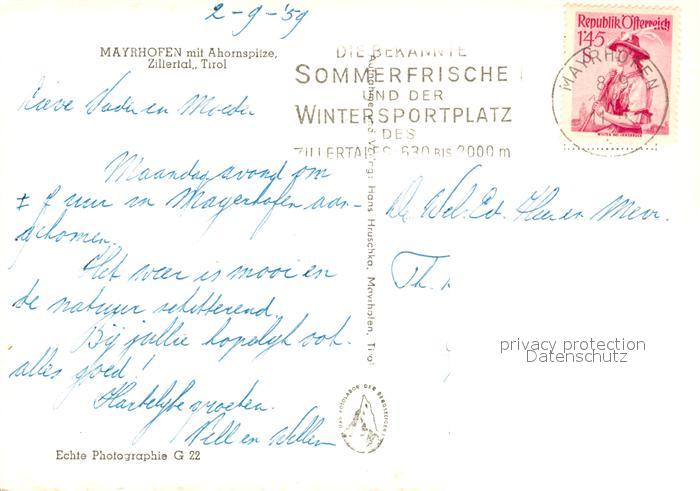 2-9-'59
MAYRHOFEN mit Ahornspitze,
Zillertal,, Tirol
DIE BEKANNTE
SOMMERFRISCHE
UND DER
WINTERSPORTPLATZ
DES
ZILLERTALES 630 BIS 2000 m
Republik Österreich
1'45
MAYRHOFEN
Lieve Vader en Moeder
Maandagavond om
± 7 uur in Mayerhofen aan-
gekomen.
Het weer is mooi en
de natuur schitterend.
Bij jullie hopelijk ook
alles goed!
Hartelijke groeten.
en Willem
Echte Photographie G 22
Verlag: Hans Hruschka, Mayrhofen, Tirol
De Wel. Ed. Heer en Mevr.
Th.
privacy protection
Datenschutz